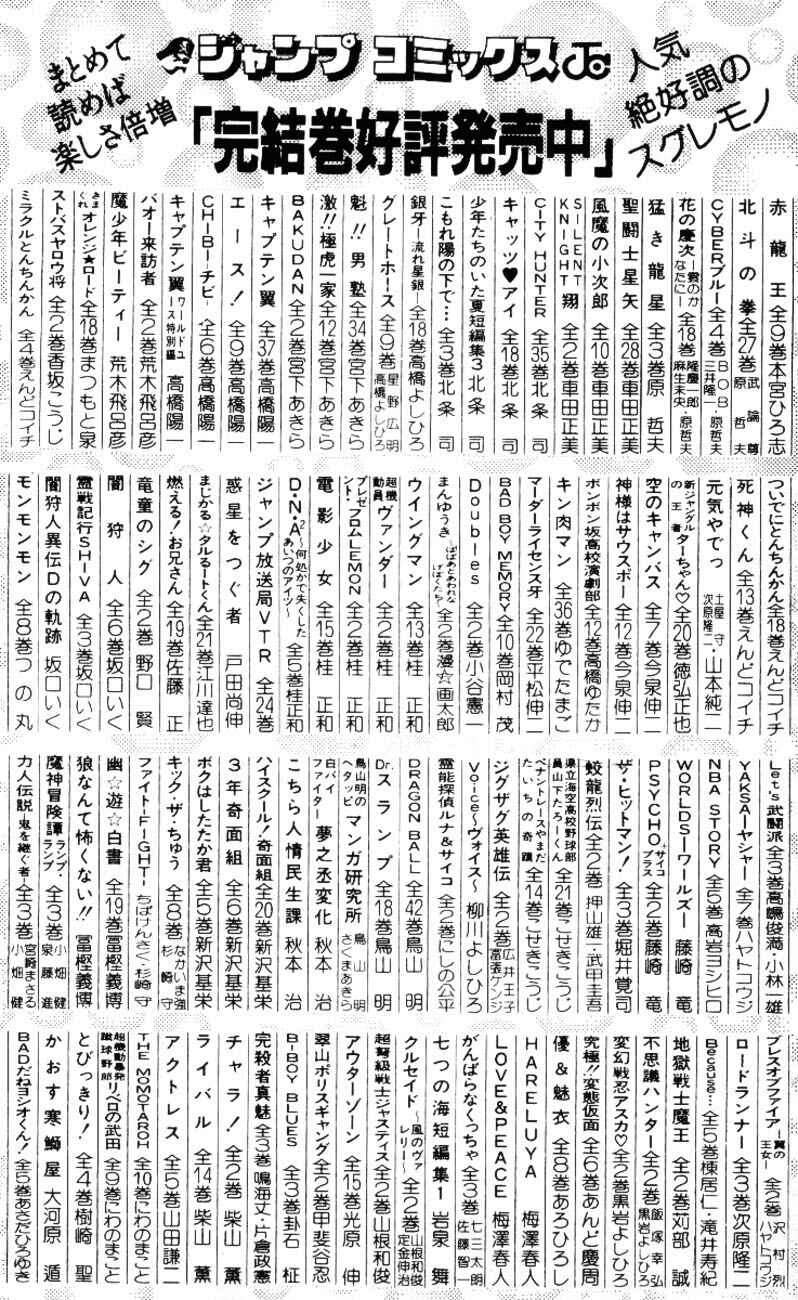 まとめて
読めば
楽しさ倍増
ジャンプ コミックス
人気
絶好調の
スグレモノ
「完結巻好評発売中」
赤龍王 全9巻 本宮ひろ志
北斗の拳 全27巻 武論尊 原哲夫
CYBERブルー 全4巻 三井隆一 BOB・原哲夫
花の慶次―雲のかなたに― 全18巻 隆慶一郎 麻生未央・原哲夫
猛き龍星 全3巻 原哲夫
聖闘士星矢 全28巻 車田正美
風魔の小次郎 全10巻 車田正美
SILENT KNIGHT 翔 全2巻 車田正美
CITY HUNTER 全35巻 北条司
キャッツ♥アイ 全18巻 北条司
少年たちのいた夏 短編集3 北条司
こもれ陽の下で… 全3巻 北条司
銀牙―流れ星 銀― 全18巻 高橋よしひろ
グレートホース 全9巻 星野広明 高橋よしひろ
魁!!男塾 全34巻 宮下あきら
激!!極虎一家 全12巻 宮下あきら
BAKUDAN 全2巻 宮下あきら
キャプテン翼 全37巻 高橋陽一
エース! 全9巻 高橋陽一
CHIBI―チビ― 全6巻 高橋陽一
キャプテン翼 ワールドユース特別編 高橋陽一
バオー来訪者 全2巻 荒木飛呂彦
魔少年ビーティー 荒木飛呂彦
きまぐれオレンジ★ロード 全18巻 まつもと泉
ストパズヤロウ将 全2巻 香坂こうじ
ミラクルとんちんかん 全4巻 えんどコイチ
ついでにとんちんかん 全18巻 えんどコイチ
死神くん 全13巻 えんどコイチ
元気やでっ 土屋守 次原隆二・山本純二
新ジャングルの王者ターちゃん♡ 全20巻 徳弘正也
空のキャンバス 全7巻 今泉伸二
神様はサウスポー 全12巻 今泉伸二
ボンボン坂高校演劇部 全12巻 高橋ゆたか
キン肉マン 全36巻 ゆでたまご
マーダーライセンス牙 全22巻 平松伸二
BAD BOY MEMORY 全10巻 岡村茂
Doubles 全2巻 小谷憲一
まんゆうき～ばばあとあわれなげぼくたち～ 全2巻 漫☆画太郎
ウイングマン 全13巻 桂正和
超機動員ヴァンダー 全2巻 桂正和
プレゼント・フロムLEMON 全2巻 桂正和
電影少女 全15巻 桂正和
D・N・A²～何処かで失くしたあいつのアイツ～ 全5巻 桂正和
ジャンプ放送局VTR 全24巻
惑星をつぐ者 戸田尚伸
まじかる☆タルるートくん 全21巻 江川達也
燃える!お兄さん 全19巻 佐藤正
竜童のシグ 全2巻 野口賢
闇狩人 全6巻 坂口いく
霊戦記行SHIVA 全3巻 坂口いく
闇狩人異伝Dの軌跡 坂口いく
モンモンモン 全8巻 つの丸
Let's武闘派 全3巻 高嶋俊満・小林一雄
YAKSA―ヤシャー 全7巻 ハヤトコウジ
NBA STORY 全5巻 高岩ヨシヒロ
WORLDS―ワールズ― 藤崎竜
PSYCHO+サイコプラス 全2巻 藤崎竜
ザ・ヒットマン! 全3巻 堀井覚司
蛟龍烈伝 全2巻 押山雄一・武甲圭吾
県立海空高校野球部員山下たろーくん 全21巻 こせきこうじ
ペナントレースやまだたいちの奇蹟 全14巻 こせきこうじ
ジグザグ英雄伝 全2巻 広井王子 富張ケンジ
Voice～ヴォイス～ 柳川よしひろ
霊能探偵ルナ&サイコ 全2巻 にしの公平
DRAGON BALL 全42巻 鳥山明
Dr.スランプ 全18巻 鳥山明
鳥山明のヘタッピマンガ研究所 鳥山明 さくまあきら
白バイファイター夢之丞変化 秋本治
こちら人情民生課 秋本治
ハイスクール!奇面組 全20巻 新沢基栄
3年奇面組 全6巻 新沢基栄
ボクはしたたか君 全5巻 新沢基栄
キック・ザ・ちゅう 全8巻 なかいま強
ファイト―FIGHT― ちばけんさく・杉崎守
幽☆遊☆白書 全19巻 冨樫義博
狼なんて怖くない!! 冨樫義博
魔神冒険譚ランプ・ランプ 全3巻 小畑健 泉藤進
力人伝説―鬼を継ぐ者― 全3巻 宮崎まさる 小畑健
ブレスオブファイア―翼の王女― 全2巻 沢村烈 ハヤトコウジ
ロードランナー 全3巻 次原隆二
Because… 全5巻 棟居仁・滝井寿紀
地獄戦士魔王 全2巻 苅部誠
不思議ハンター 全2巻 飯塚幸弘 黒岩よしひろ
変幻戦忍アスカ♡ 全2巻 黒岩よしひろ
究極!!変態仮面 全6巻 あんど慶周
優&魅衣 全8巻 あろひろし
HARELUYA 梅澤春人
LOVE&PEACE 梅澤春人
がんばらなくっちゃ 全3巻 七三太朗 佐藤智一
七つの海 短編集1 岩泉舞
クルセイド～風のヴァレリー～ 全2巻 山根和俊 定金伸治
超弩級戦士ジャスティス 全2巻 山根和俊
アウターゾーン 全15巻 光原伸
翠山ポリスギャング 全2巻 甲斐谷忍
BI-BOY BLUES 全3巻 卦石柾
完殺者真魅 全3巻 鳴海丈・片倉政憲
チャラ! 全2巻 柴山薫
ライバル 全14巻 柴山薫
アクトレス 全5巻 山田謙二
THE MOMOTAROH 全10巻 にわのまこと
超機動暴発蹴球野郎リベロの武田 全9巻 にわのまこと
とびっきり! 全4巻 樹崎聖
かおす寒鰤屋 大河原遁
BADだねヨシオくん! 全5巻 あさだひろゆき